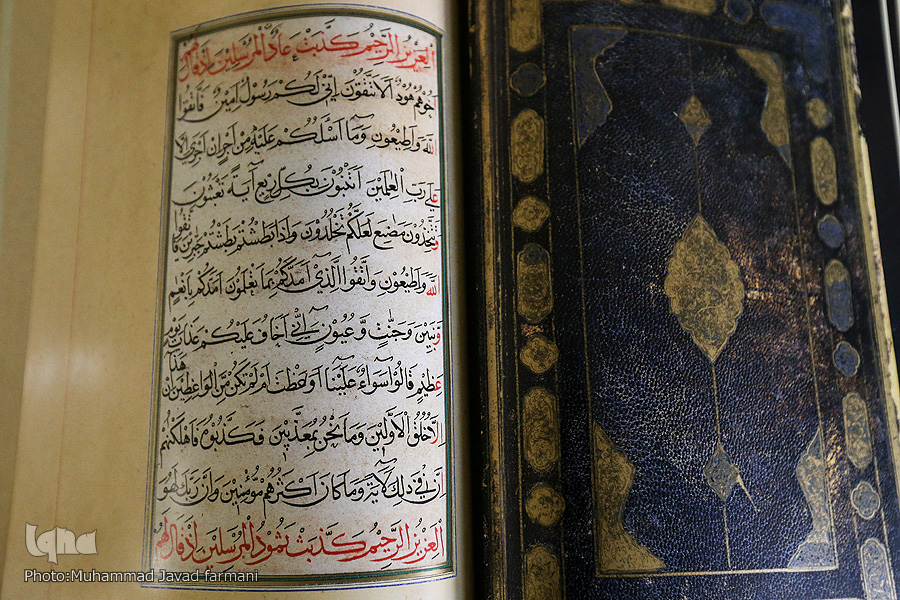 العزيز الرحيم كذبت عاد المرسلين اذ قال لهم
اخوهم هود الا تتقون اني لكم رسول امين فاتقوا
الله واطيعون وما اسئلكم عليه من اجر ان اجري الا
على رب العلمين اتبنون بكل ريع اية تعبثون
وتتخذون مصانع لعلكم تخلدون واذا بطشتم بطشتم جبارين فاتقوا
الله واطيعون واتقوا الذي امدكم بما تعلمون امدكم بانعم
وبنين وجنت وعيون اني اخاف عليكم عذاب يوم
عظيم قالوا سواء علينا اوعظت ام لم تكن من الواعظين ان هذا
الا خلق الاولين وما نحن بمعذبين فكذبوه فاهلكنهم
ان في ذلك لاية وما كان اكثرهم مؤمنين وان ربك لهو
العزيز الرحيم كذبت ثمود المرسلين اذ قال لهم
iqna
Photo:Muhammad Javad farmani